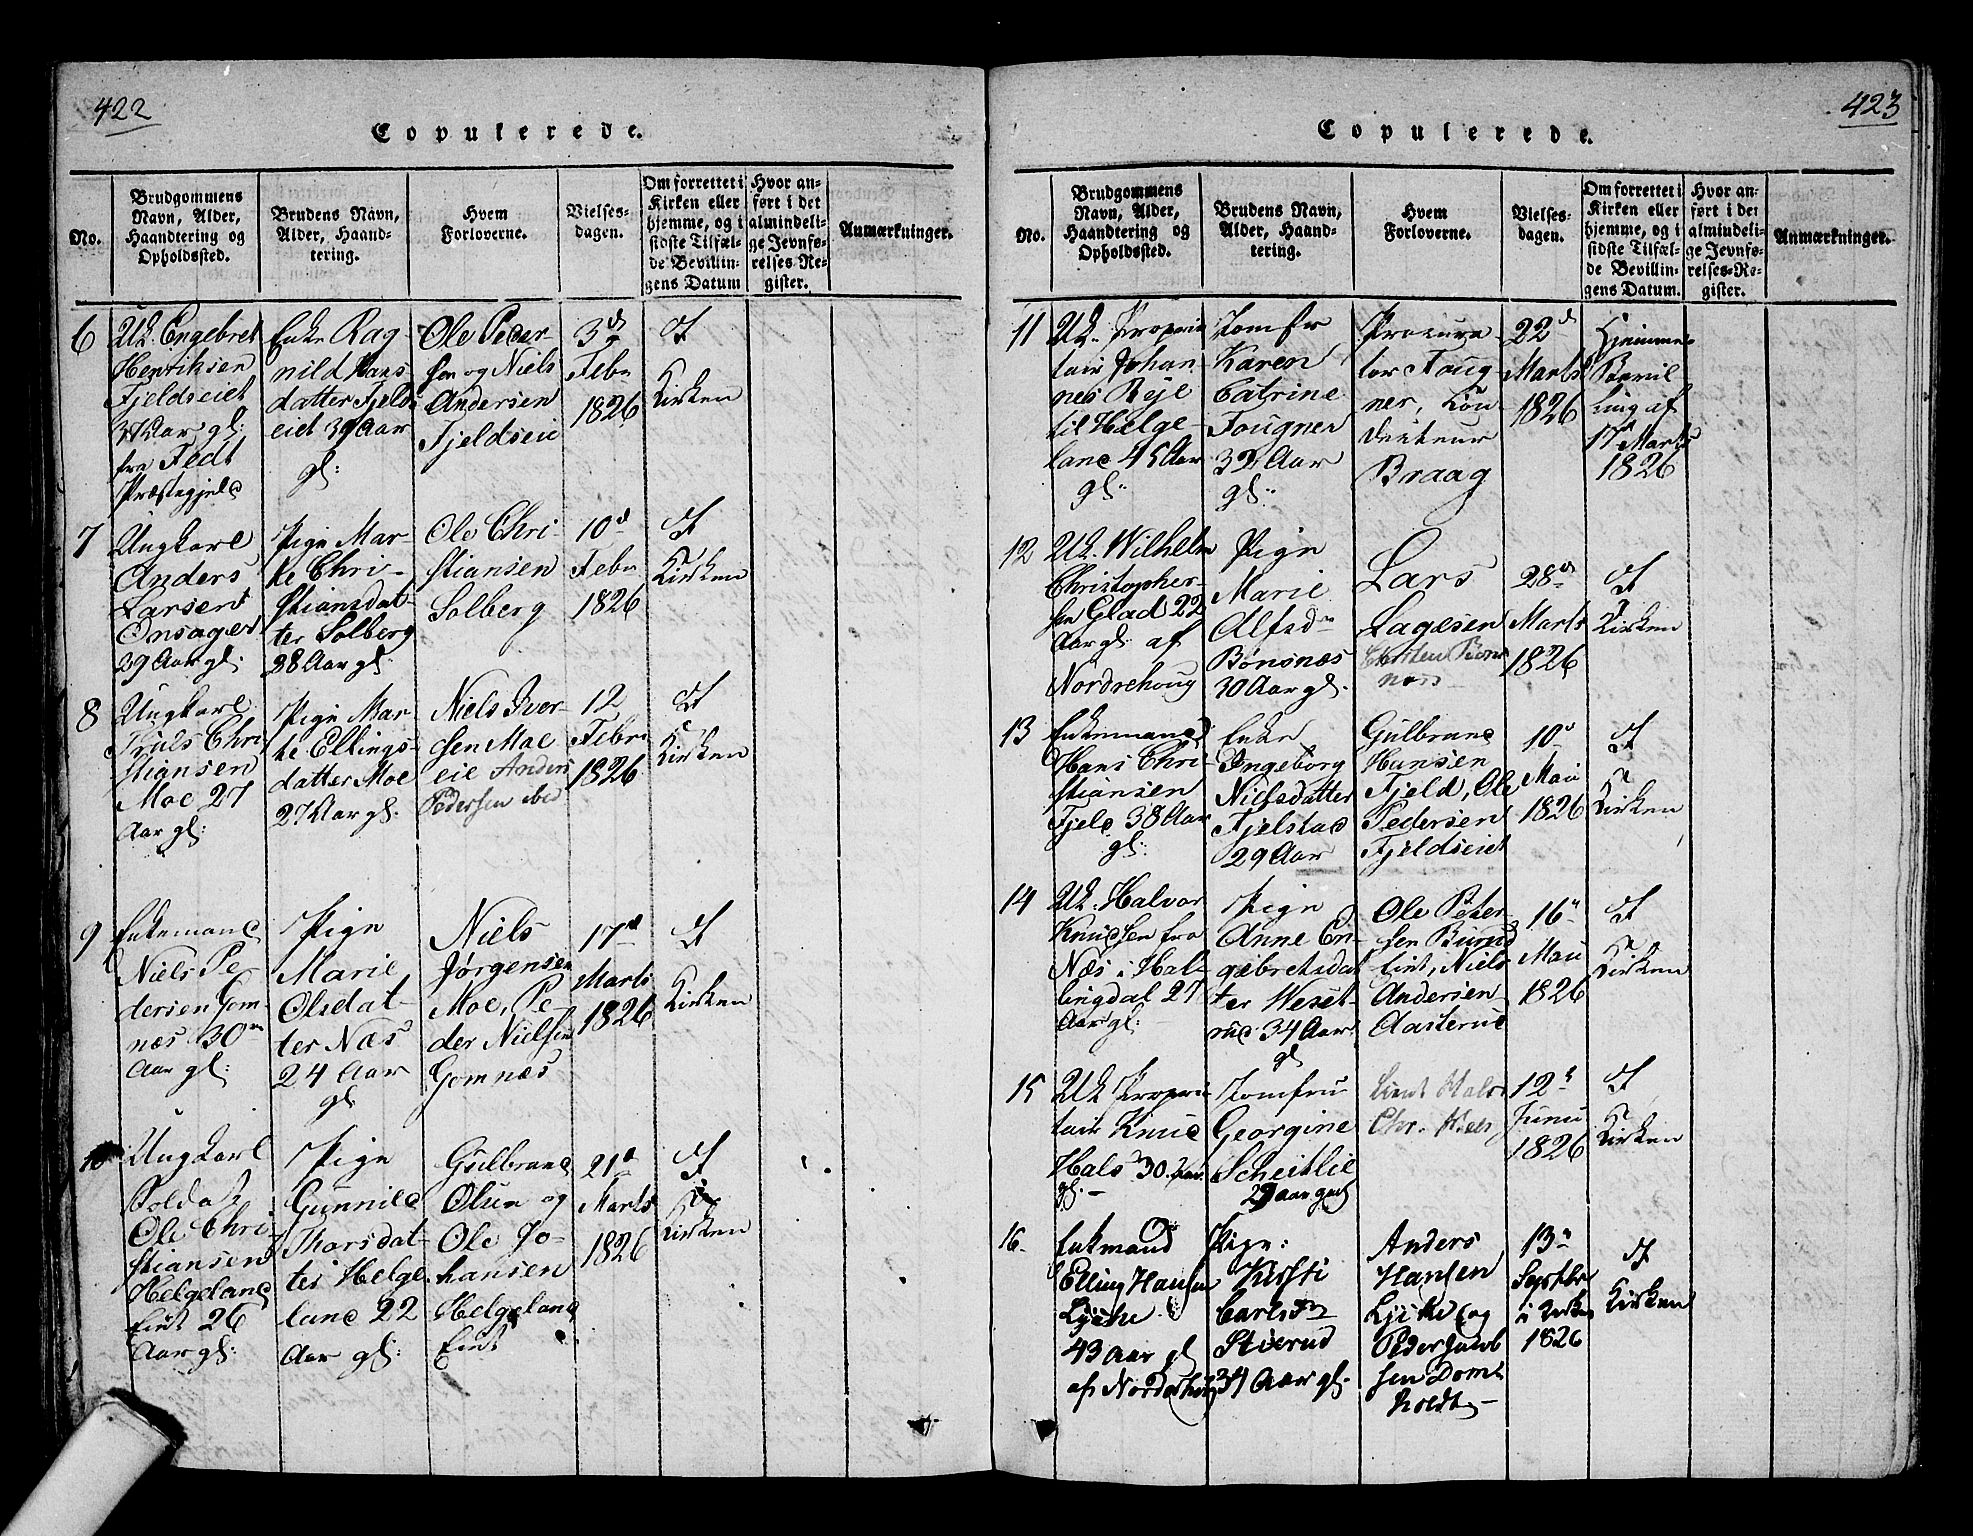 422
Copulerede.
No.
Brudgommens
Navn, Alder,
Haandtering og
Opholdssted.
Brudens Navn,
Alder, Haand-
tering.
Hvem
Forloverne.
Vielses-
dagen.
Om forrettet i
Kirken eller
hjemme, og i
sidste Tilfæl-
de Bevillin-
gens Datum
Hvor an-
ført i det
almindeli-
ge Jevnfø-
relses Re-
gister.
Anmærkninger.
6
Uk. Engebret
Henriksen
Fjeldseiet
37 Aar gl:
fra Fedt
Præstegjeld
Enke Rag-
nild Hans-
datter Fjelds
eiet 39 Aar
gl:
Ole Peder-
sen og Niels
Andersen
Fjeldseie
3d
Febr
1826
I
Kirken
7
Ungkarl
Anders
Larsen
Onsager
29 Aar gl:
Pige Mar-
te Chri-
stiansdat-
ter Solberg
28 Aar gl:
Ole Chri-
stiansen
Solberg
10d
Febr
1826
I
Kirken
8
Ungkarl
Truls Chri
stiansen
Moe 27
Aar gl:
Pige Mar-
te Ellings-
datter Moe
27 Aar gl:
Niels Iver-
sen Moe
eie Anders
Pedersen ibid
12
Febr
1826
I
Kirken
9
Enkemand
Niels Pe-
dersen Gom-
næs 30
Aar gl:
Pige
Marie
Olsdat-
ter Næs
24 Aar
gl
Niels
Jørgensen
Moe, Pe-
der Nielsen
Gomnæs
17d
Marts
1826
I
Kirken
10
Ungkarl
Soldat
Ole Chri-
stiansen
Helgeland
Eiet 26
Aar gl:
Pige
Gunnild
Thorsdat-
ter Helge
land 22
Aar gl:
Gulbrand
Olsen og
Ole Jo-
hansen
Helgeland
Eiet
21d
Marts
1826
I
Kirken
423
Copulerede.
No.
Brudgommens
Navn, Alder,
Haandtering og
Opholdssted.
Brudens Navn,
Alder, Haand-
tering.
Hvem
Forloverne.
Vielses-
dagen.
Om forrettet i
Kirken eller
hjemme, og i
sidste Tilfæl-
de Bevillin-
gens Datum.
Hvor an-
ført i det
almindeli-
ge Jevnfø-
relses-Re-
gister.
Anmærkninger.
11
Uk. Proprie
tair Johan
nes Reje
til Helge-
land 45 Aar
gl:
Jomfr
Karen
Catrine
Fougner
32 Aar
gl:
Procura
tor Foug-
ner, Con
ducteur
Braag
22d
Marts
1826
Hjemme
Bevil
ling af
17 Marts
1826
12
Uk. Wilhelm
Christopher-
sen Glad 22
Aar gl: af
Nordrehoug
Pige
Marie
Alfsd
Bønsnæs
30 Aar gl.
Lars
Lagesen
28d
Marts
1826
I
Kirken
13
Enkemand
Hans Chri-
stiansen
Fjeld 38 Aar
gl:
Enke
Ingeborg
Nielsdatter
Fjelstad
29 Aar
Gulbrand
Hansen
Fjeld, Ole
Pedersen
Fjeldseiet
10d
Mai
1826
I
Kirken
14
Uk: Halvor
Knudsen fra
Næs i Hal-
lingdal 27
Aar gl:
Pige
Anne En-
gebretsdat
ter Weset-
rud 34 Aar
gl
Ole Peter-
sen
Niels
Andersen
Aasterud
16
Mai
1826
I
Kirken
15
Uk Proprie
tair Knud
Hals 30 Aar
gl.
Jomfru
Georgine
Scheitlie
29 Aar gml
12
Juni
1826
I
Kirken
16.
Enkmand
Elling Hansen
43 Aar gl
af Norderhoug
Pige:
Kirsti
Carlsdr
Stierud
34 Aar gl.
Anders
Hansen
og
Peder Jacob
sen Dom
holdt
13
Septbr
i Kirken
1826
I
Kirken